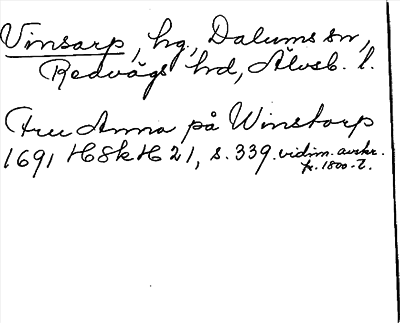 Vinsarp, hg, Dalums sn,
Redvägs hd, Älvsb. l.
Fru Anna på Winstorp
1691 HSkH 21, s. 339. vidim. avskr.
fr. 1800-t.